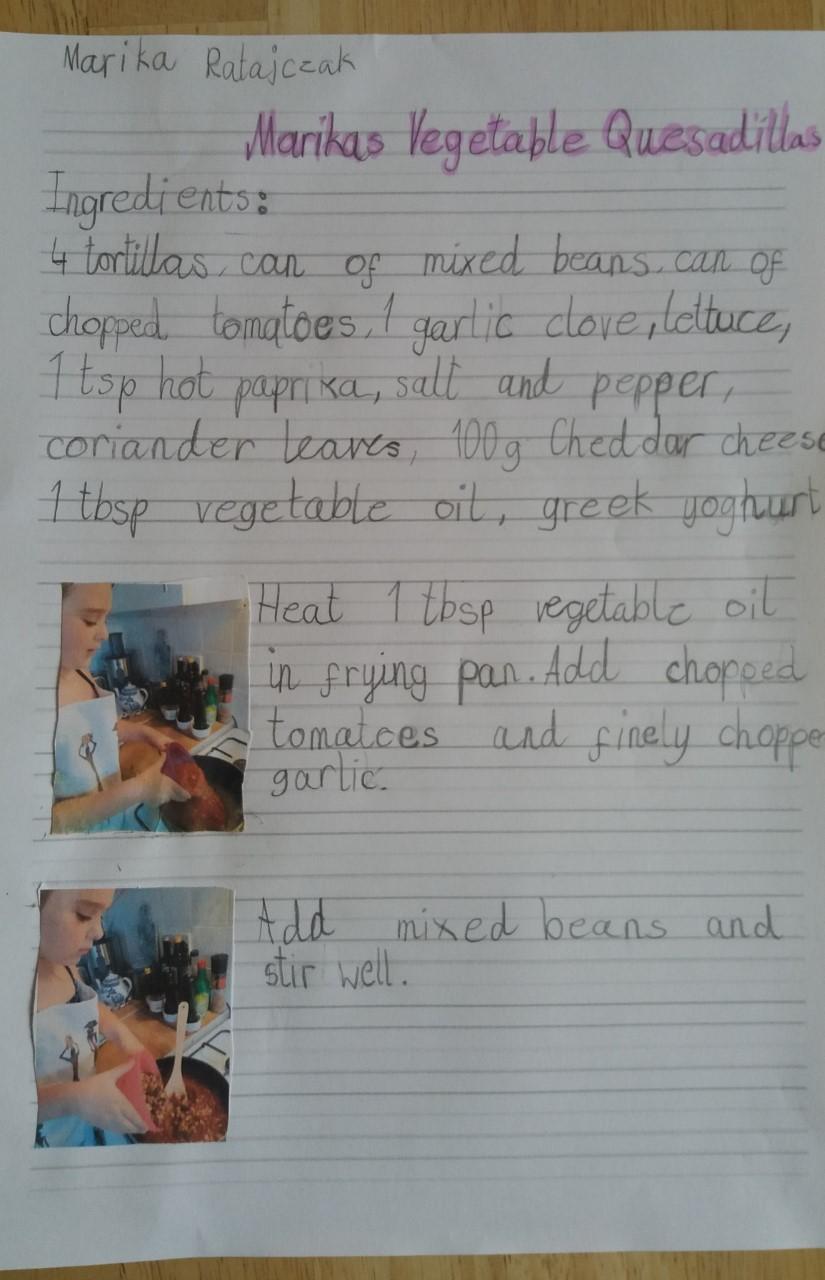 Marika Ratajczak
Marikas Vegetable Quesadillas
Ingredients:
4 tortillas, can of mixed beans, can of
chopped tomatoes, 1 garlic clove, lettuce,
1 tsp hot paprika, salt and pepper,
coriander leaves, 100g Cheddar cheese
1 tbsp vegetable oil, greek yoghurt
Heat 1 tbsp vegetable oil
in frying pan. Add chopped
tomatoes and finely choppe
garlic.
Add mixed beans and
stir well.